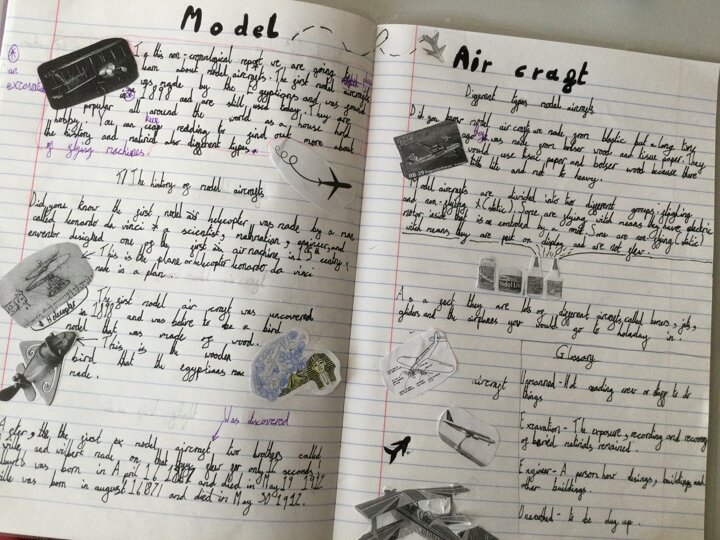 Model
In this non-crronalgical report we are going
learn about model aircrafts. The first model aircrafts
was made by the Egyptions and was found
in 1898 and are still used today. They are
popular all around the world as a house hold
hobby. You can redding to find out more about
the history and
different types
of flying machines.
an
excavate
The history of model aircrafts
Did you know the first model helicopter was made by a man
called leonardo da vinci a scientist, mathmation, engineer, and
enventor designed one of the first air machine in 15th century.
This is the plane or helicopter leonardo da vinci
made in a plan.
The first model air craft was uncovered
in 1898 and was belive to be a bird
model that was made of wood.
This is the wooden
bird that the egyptians
made.
Was discovered
After, the the first model aircraft two brothers called
and wilbert made on that flew for only 12 seconds!
was born in A pril 16 and died in May 19 1912
was born in august 1871 and died in May 30 1912.
Air craft
Different types model aircrafts
Did you know model air crafts are made from plastic but a long time
ago was made from balser wood and tissue paper. They
would use tissue paper and balser wood because there
little and not to heavy.
Model aircrafts are divided into two different groups; flighing
and non-flying (static). Some are flying witch means they have electric
motor inside that is a and Some are non-flying (static)
witch means they are put on display and are not flew.
As a fact they are lots of different aircrafts called
gliders and the airplanes you would go to holaday in.
Glossary
aircraft
Unmanned - Not needing crew or to do
things
Excavation - The exposure, recording and recovery
of buried matirials remained.
Enginer - A person how disings, buildings and
other buildings.
to be dug up.